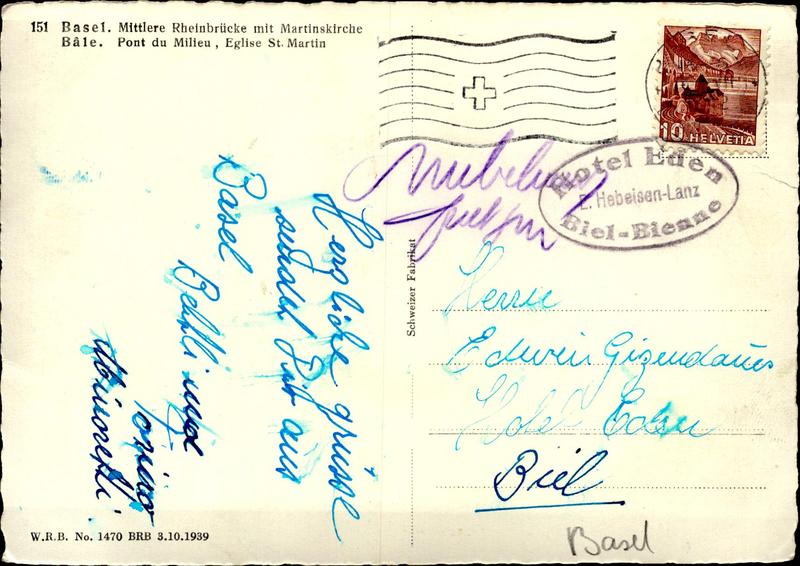 151 Basel. Mittlere Rheinbrücke mit Martinskirche
Bâle. Pont du Milieu, Eglise St. Martin
10 HELVETIA
Hotel Eden
E. Hebeisen-Lanz
Biel-Bienne
Schweizer Fabrikat
Herzliche grüsse
sendet Dir aus
Basel
Betli und
Herrn
Edwin
Hotel Eden
Biel
Basel
W.R.B. No. 1470 BRB 3.10.1939